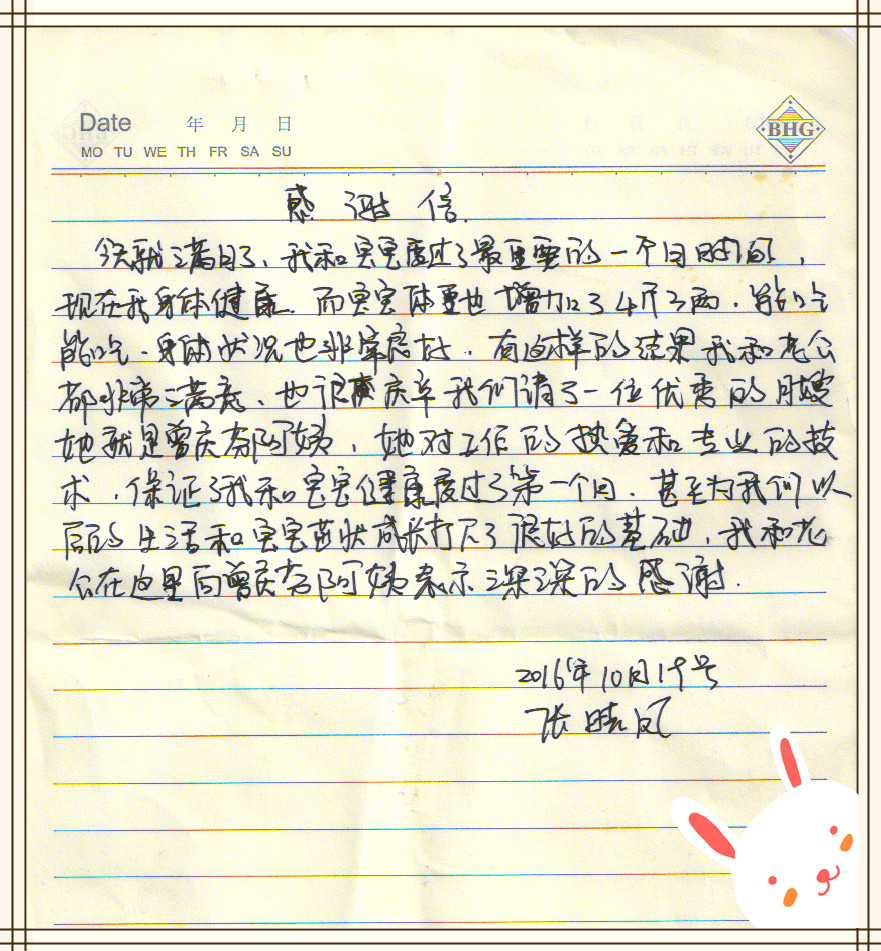 Date 年 月 日
MO TU WE TH FR SA SU
BHG
感谢信.
今天就满月了、我和宝宝度过了最重要的一个月时间,
现在我身体健康.而宝宝体重也增加了4斤3两.能吃
能吃.身体状况也非常良好.有这样的结果我和老公
都非常满意、也很庆幸我们请了一位优秀的月嫂
她就是曾庆芬阿姨,她对工作的热爱和专业的技
术,保证了我和宝宝健康度过了第一个月.甚至为我们以
后的生活和宝宝茁状成长打下了很好的基础,我和老
公在这里向曾庆芬阿姨表示深深的感谢.
2016年10月19号
张晴凤